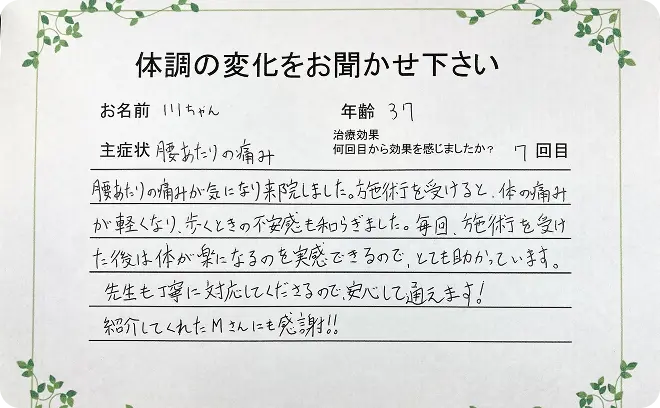 体調の変化をお聞かせ下さい
お名前 川ちゃん 年齢 37
治療効果
主症状 腰あたりの痛み 何回目から効果を感じましたか? 7 回目
腰あたりの痛みが気になり来院しました。施術を受けると、体の痛み
が軽くなり、歩くときの不安感も和らぎました。毎回、施術を受け
た後は体が楽になるのを実感できるので、とても助かっています。
先生も丁寧に対応してくださるので、安心して通えます!
紹介してくれたMさんにも感謝!!